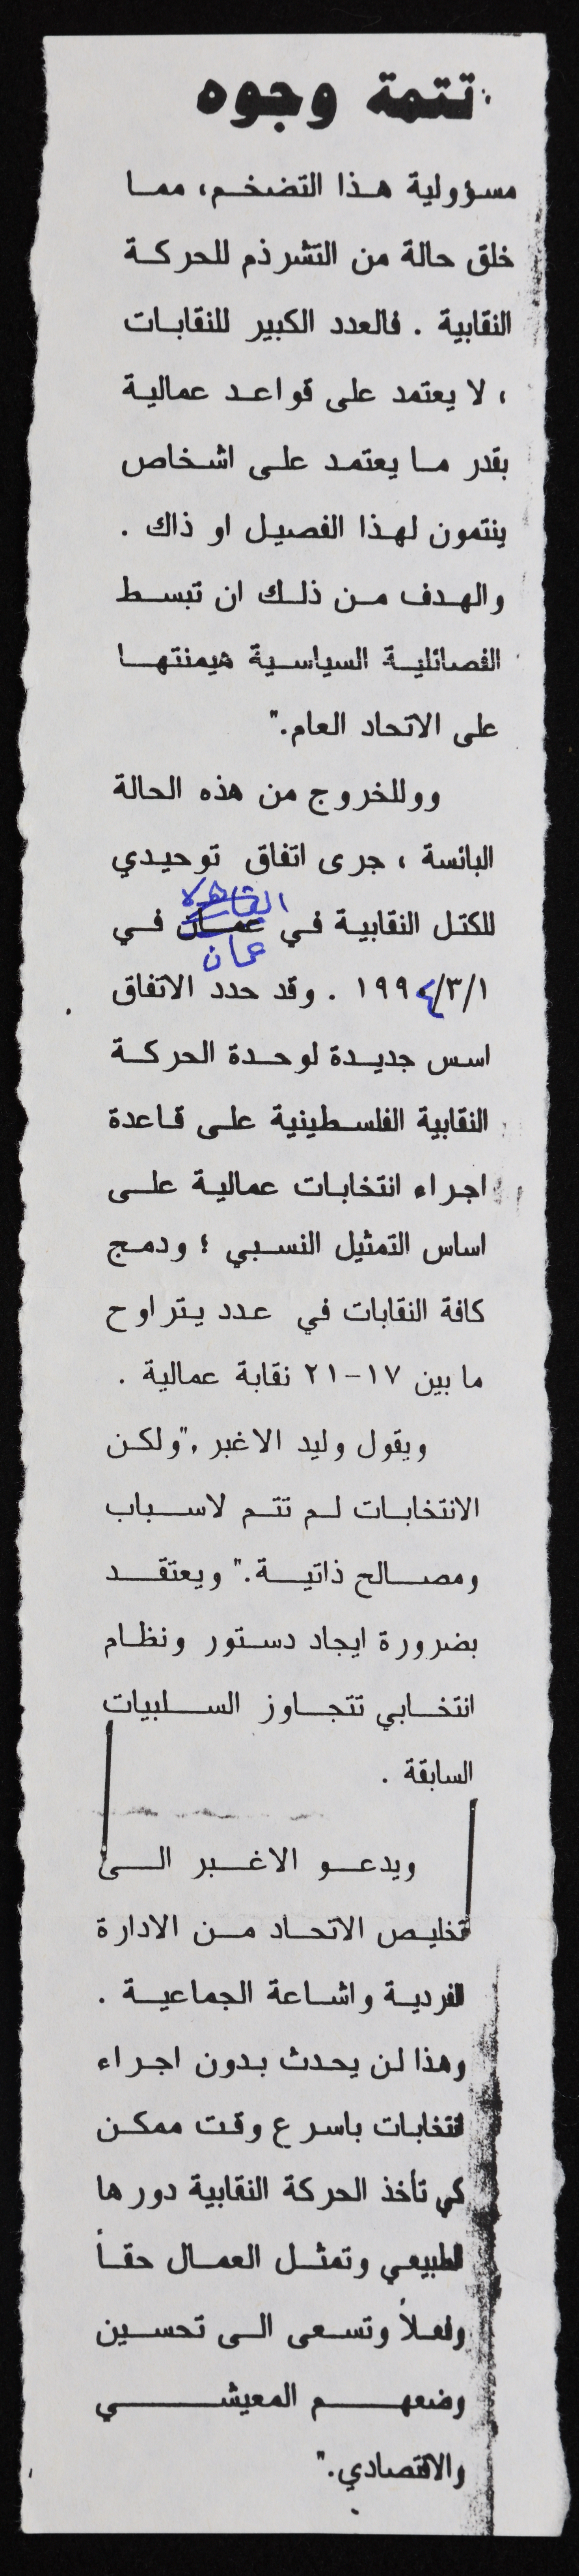 تتمة وجوه
مسؤولية هذا التضخم، مما
خلق حالة من التشرذم للحركة
النقابية . فالعدد الكبير للنقابات
، لا يعتمد على قواعد عمالية
بقدر ما يعتمد على اشخاص
ينتمون لهذا الفصيل او ذاك .
والهدف من ذلك ان تبسط
الفصائلية السياسية هيمنتها
على الاتحاد العام."
ووللخروج من هذه الحالة
البائسة ، جرى اتفاق توحيدي
القاهرة
للكتل النقابية في عمان في
عمان
١٩٩٤/٣/١ . وقد حدد الاتفاق
اسس جديدة لوحدة الحركة
النقابية الفلسطينية على قاعدة
اجراء انتخابات عمالية على
اساس التمثيل النسبي ؛ ودمج
كافة النقابات في عدد يتراوح
ما بين ١٧-٢١ نقابة عمالية .
ويقول وليد الاغبر ,"ولكن
الانتخابات لم تتم لاسباب
ومصالح ذاتية." ويعتقد
بضرورة ايجاد دستور ونظام
انتخابي تتجاوز السلبيات
السابقة .
ويدعو الاغبر الى
تخليص الاتحاد من الادارة
الفردية واشاعة الجماعية .
وهذا لن يحدث بدون اجراء
انتخابات باسرع وقت ممكن
كي تأخذ الحركة النقابية دورها
الطبيعي وتمثل العمال حقاً
وفعلاً وتسعى الى تحسين
وضعهم المعيشي
والاقتصادي."